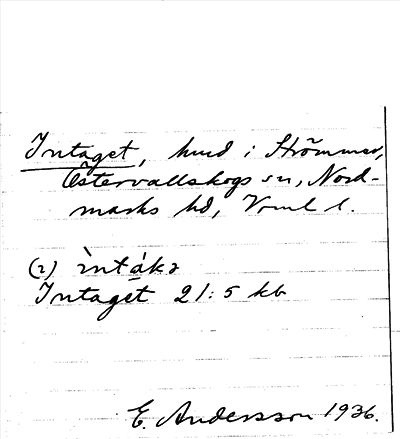 Intaget, hmd i Strömmer,
Östervallskogs sn, Nord-
marks hd, Vrml l.
(2) ìntákə
Intaget 21:5 kb
E. Andersson 1936.